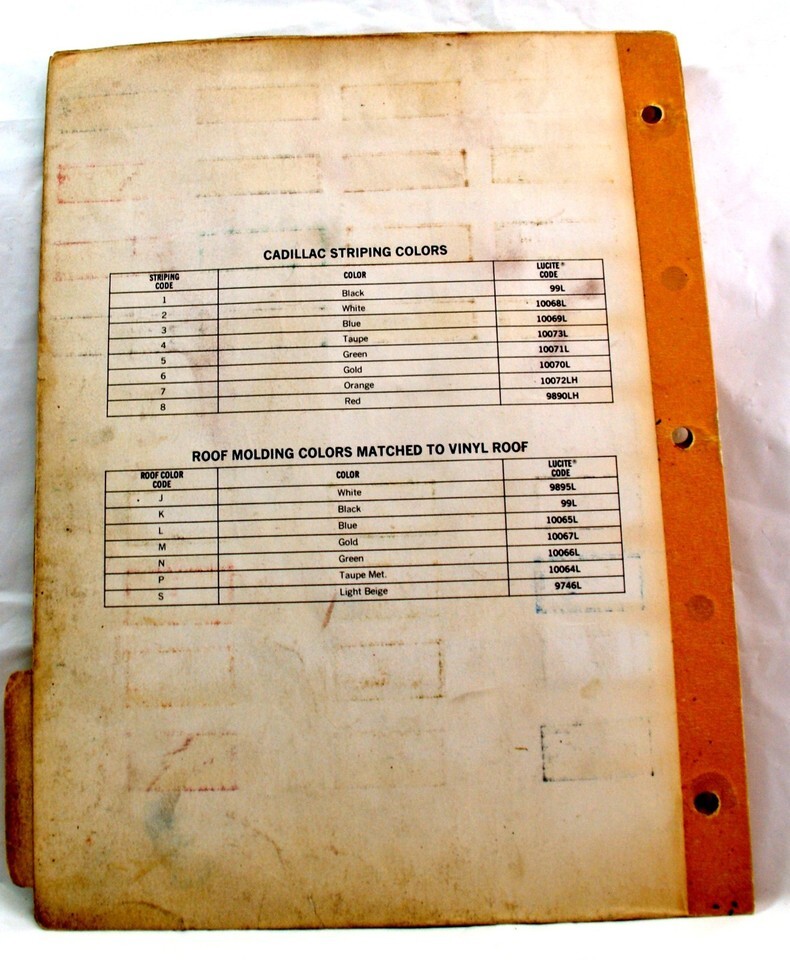 CADILLAC STRIPING COLORS
STRIPING CODE COLOR LUCITE® CODE
1 Black 99L
2 White 10068L
3 Blue 10069L
4 Taupe 10073L
5 Green 10071L
6 Gold 10070L
7 Orange 10072LH
8 Red 9890LH
ROOF MOLDING COLORS MATCHED TO VINYL ROOF
ROOF COLOR CODE COLOR LUCITE® CODE
J White 9895L
K Black 99L
L Blue 10065L
M Gold 10067L
N Green 10066L
P Taupe Met. 10064L
S Light Beige 9746L